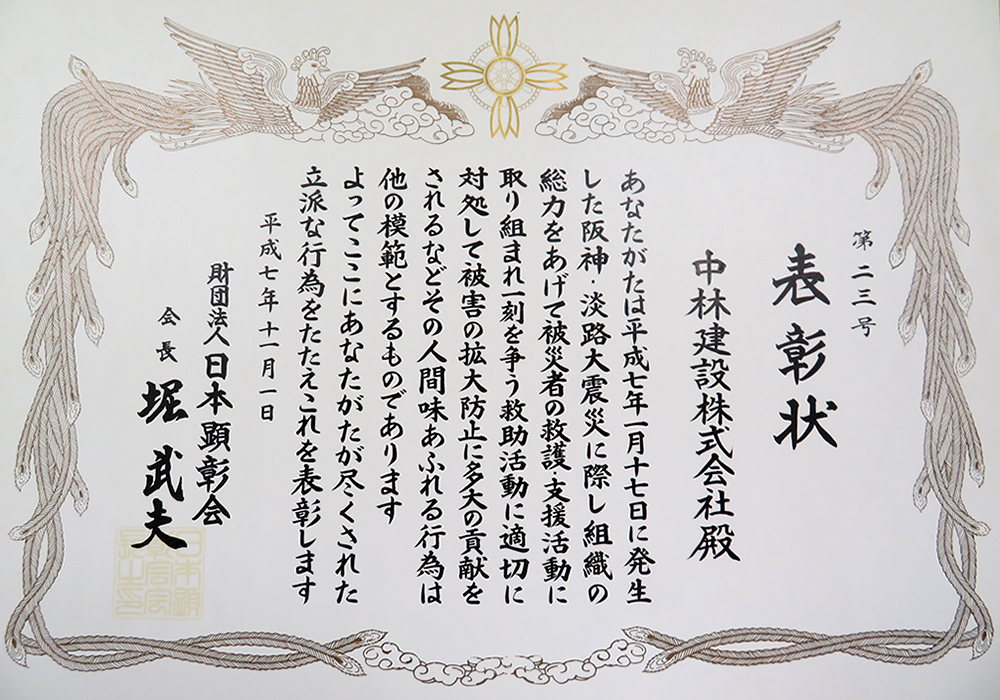 第二三号
表彰状
中林建設株式会社殿
あなたがたは平成七年一月十七日に発生
した阪神・淡路大震災に際し組織の
総力をあげて被災者の救護・支援活動に
取り組まれ一刻を争う救助活動に適切に
対処して被害の拡大防止に多大の貢献を
されるなどその人間味あふれる行為は
他の模範とするものであります
よってここにあなたがたが尽くされた
立派な行為をたたえこれを表彰します
平成七年十一月一日
財団法人日本顕彰会
会長 堀武夫